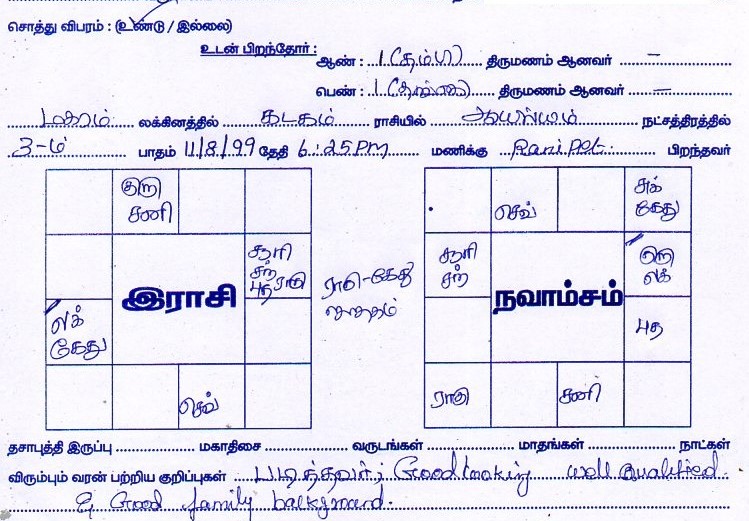 சொத்து விபரம் : (உண்டு / இல்லை)
உடன் பிறந்தோர் : ஆண் : 1 (தம்பி) திருமணம் ஆனவர் –
பெண் : 1 (தங்கை) திருமணம் ஆனவர் –
மகரம் லக்கினத்தில் கடகம் ராசியில் ஆயில்யம் நட்சத்திரத்தில்
3-ம் பாதம் 11/8/99 தேதி 6:25 PM மணிக்கு Ranipet பிறந்தவர்
குரு
சனி
சூரி
சந்
புத ராகு
இராசி
லக்
கேது
செவ்
ராகு-கேது
செவ்
சுக்
கேது
சூரி
சந்
குரு
லக்
நவாம்சம்
புத
ராகு
சனி
தசாபுத்தி இருப்பு மகாதிசை வருடங்கள் மாதங்கள் நாட்கள்
விரும்பும் வரன் பற்றிய குறிப்புகள் படித்தவர்; Good looking well Qualified
& Good family background.